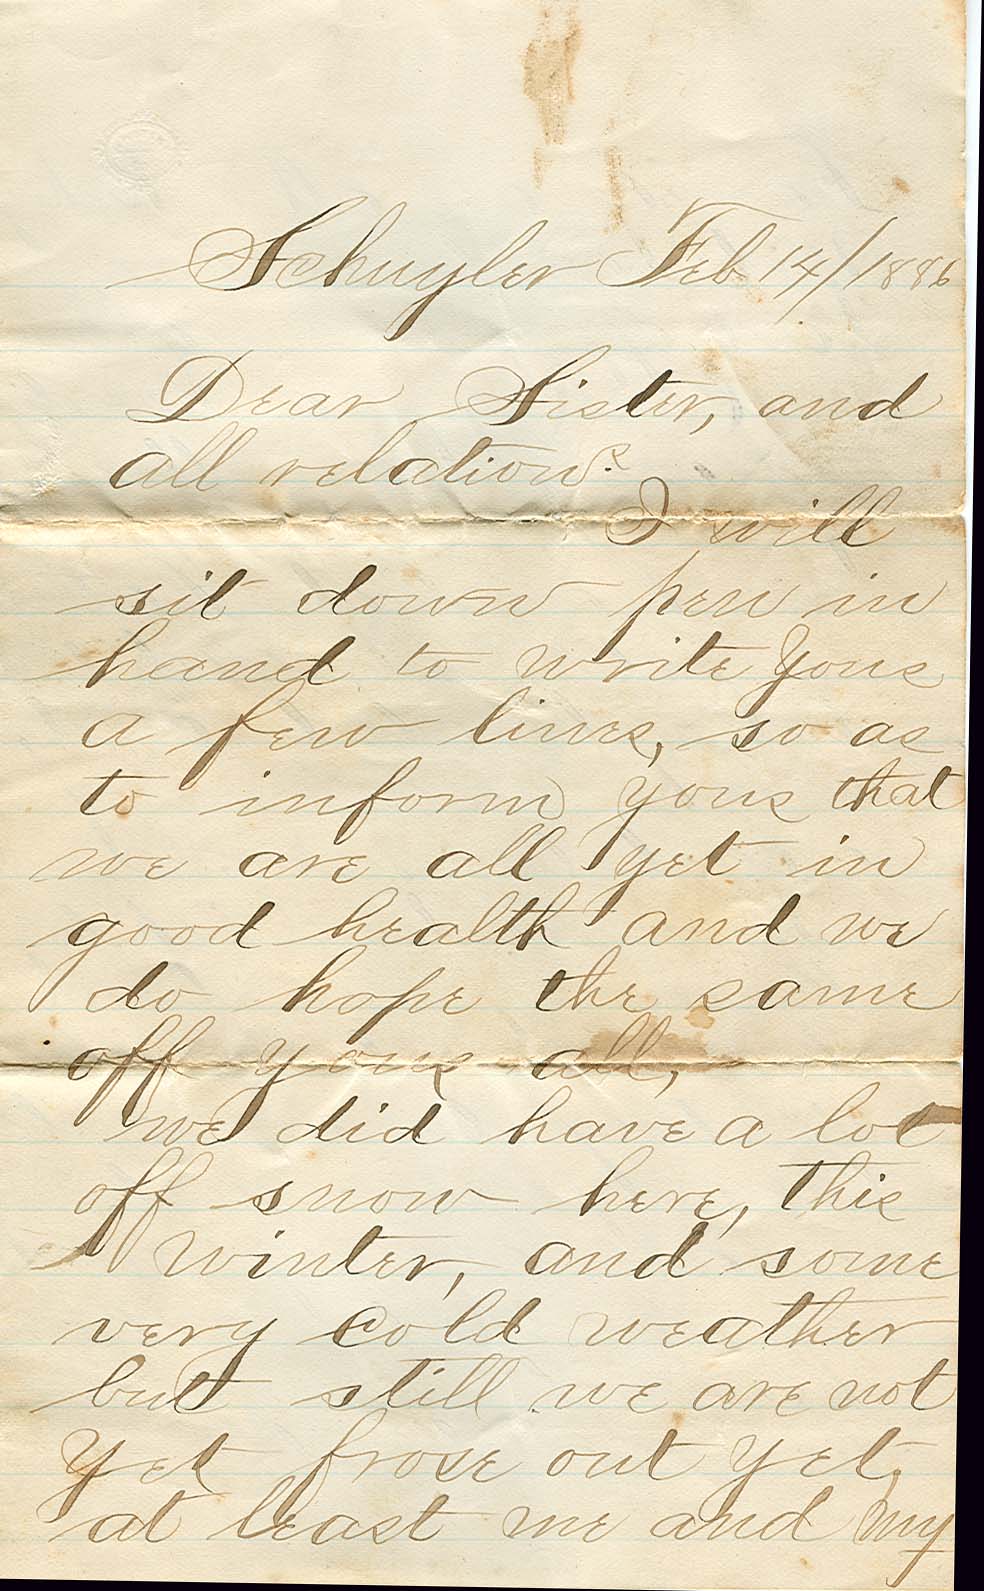 Schuyler Feb 14/1886
Dear Sister, and
all relations.
I will
sit down pen in
hand to write yous
a few lines, so as
to inform yous that
we are all yet in
good health and we
do hope the same
off yous all,
we did have a lot
off snow here, this
winter, and some
very cold weather
but still we are not
yet frose out yet,
at least me and my